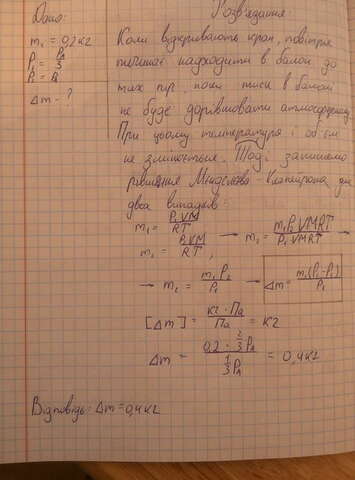 Дано:
m₁ = 0,2 кг
P₁ = Pₐ/3
P₂ = Pₐ
Δm - ?
Розв'язання:
Коли відкривають кран, повітря
починає надходити в балон до
тих пір, поки тиск в балоні
не буде дорівнювати атмосферному.
При цьому температура і об'єм
не змінюється. Тоді запишемо
рівняння Менделєєва - Клапейрона для
два випадків:
m₁ = P₁VM/RT
m₂ = P₂VM/RT, → m₂ = m₁P₂VMRT/P₁VMRT
→ m₂ = m₁P₂/P₁ → Δm = m₁(P₂-P₁)/P₁
[Δm] = кг · Па/Па = кг
Δm = 0,2 · 2/3 Pₐ / 1/3 Pₐ = 0,4 кг
Відповідь: Δm = 0,4 кг